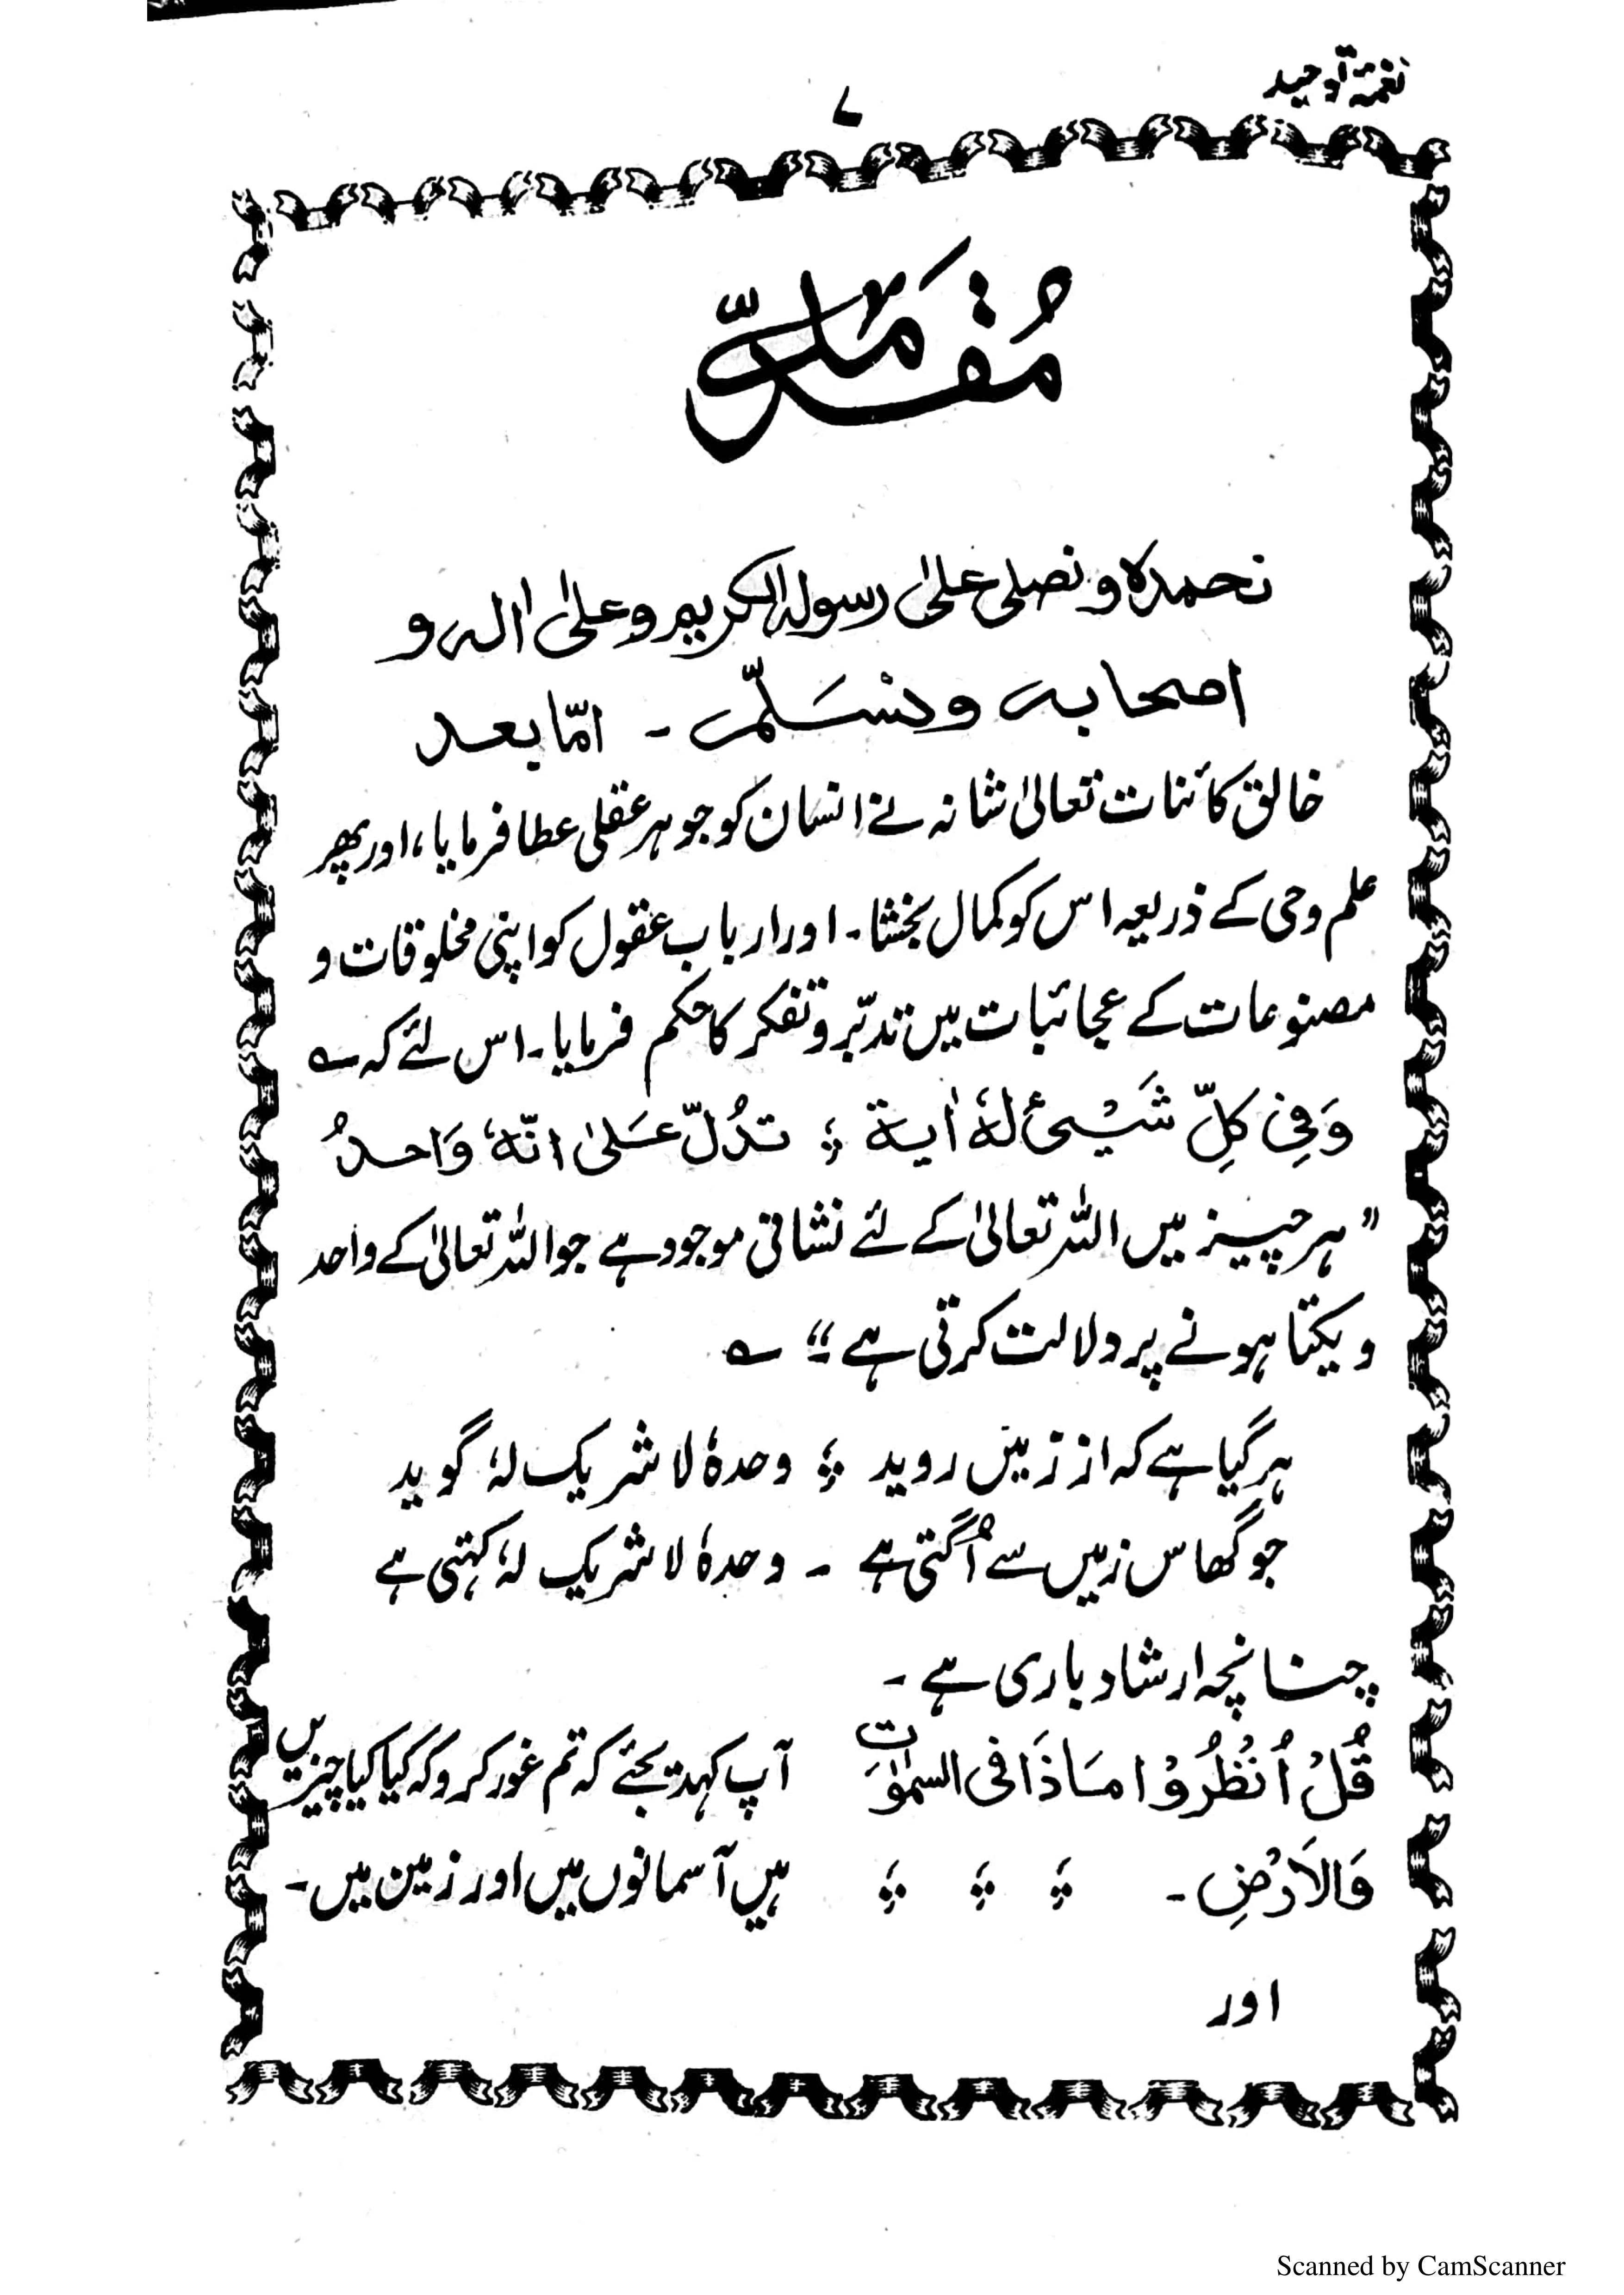 نغمۂ توحید
۷
مُقَدِّمَہ
نحمدہ و نصلی علیٰ رسولہ الکریم وعلیٰ اٰلہ و
اصحابہ ونُسَلِّم ۔ امّا بعد
خالق کائنات تعالیٰ شانہ نے انسان کو جوہر عقلی عطا فرمایا، اور پھر
علم وحی کے ذریعہ اس کو کمال بخشا۔ اور ارباب عقول کو اپنی مخلوقات و
مصنوعات کے عجائبات میں تدبّر و تفکر کا حکم فرمایا۔ اس لئے کہ ؎
وَفِی کِلِّ شَیْئٍ لہٗ اٰیۃ ؛ تدُلّ عَلیٰ انّہٗ وَاحدُ
”ہر چیز میں اللہ تعالیٰ کے لئے نشانی موجود ہے جو اللہ تعالیٰ کے واحد
و یکتا ہونے پر دلالت کرتی ہے“ ؎
ہر گیا ہے کہ از زمیں روید ؛ وحدہٗ لا شریک لہٗ گوید
جو گھاس زمیں سے اُگتی ہے ۔ وحدہٗ لا شریک لہٗ کہتی ہے
چنانچہ ارشاد باری ہے ۔
قُلْ اُنْظُرُوْا مَاذَا فی السمٰوٰت آپ کہدیجئے کہ تم غور کرو کہ کیا کیا چیزیں
وَالاَرْضِ ۔ ؛ ؛ ؛ ہیں آسمانوں میں اور زمین میں ۔
اور
Scanned by CamScanner